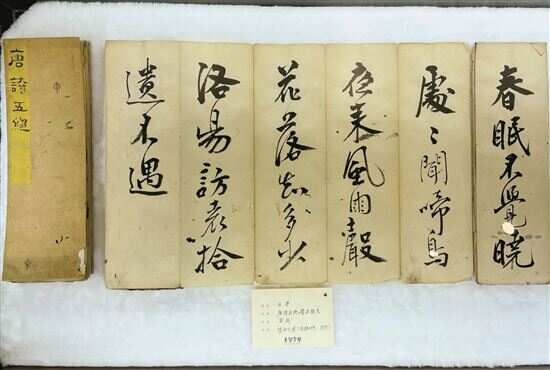 春眠不覺曉
處々聞啼鳥
夜来風雨聲
花落知多少
洛陽訪袁拾
遺不遇
唐詩五絶